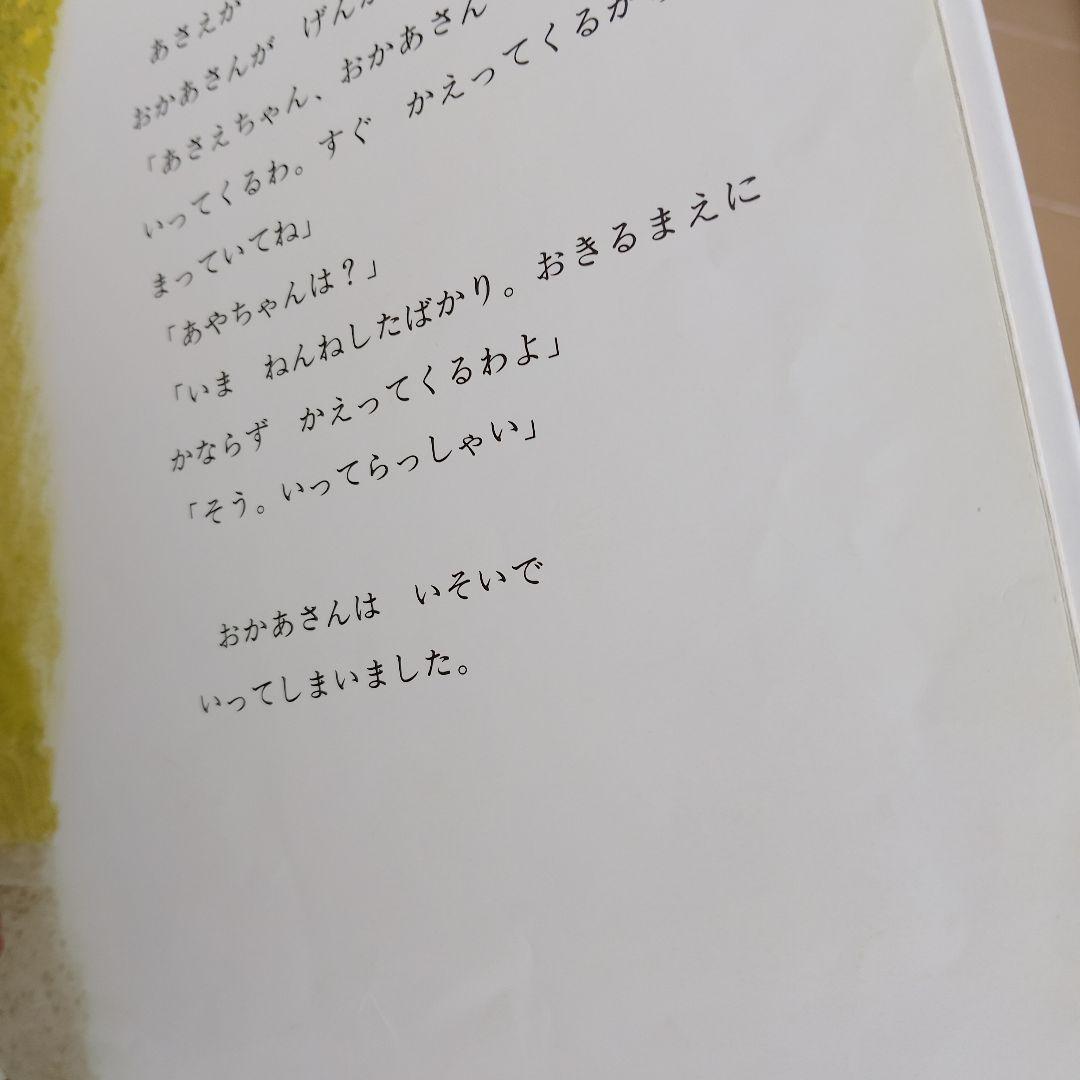 あさえが
おかあさんが　げんか
「あさえちゃん、おかあさん
いってくるわ。すぐ　かえってくるから
まっていてね」
「あやちゃんは？」
「いま　ねんねしたばかり。おきるまえに
かならず　かえってくるわよ」
「そう。いってらっしゃい」
おかあさんは　いそいで
いってしまいました。